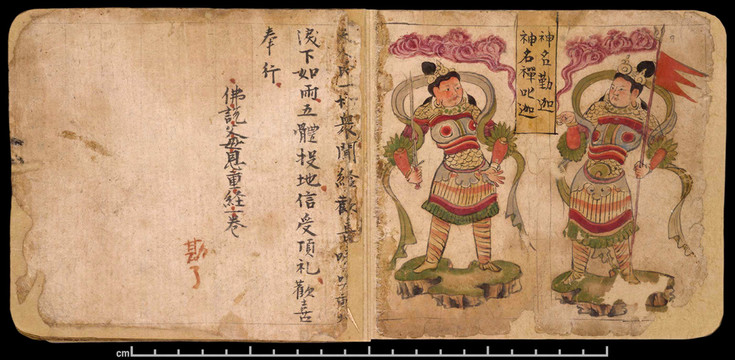 神名勤迦
神名禪叱迦
人民一切衆聞經歡喜
淚下如雨五體投地信受頂礼歡喜
奉行
佛說父母恩重経一卷
勘了
cm